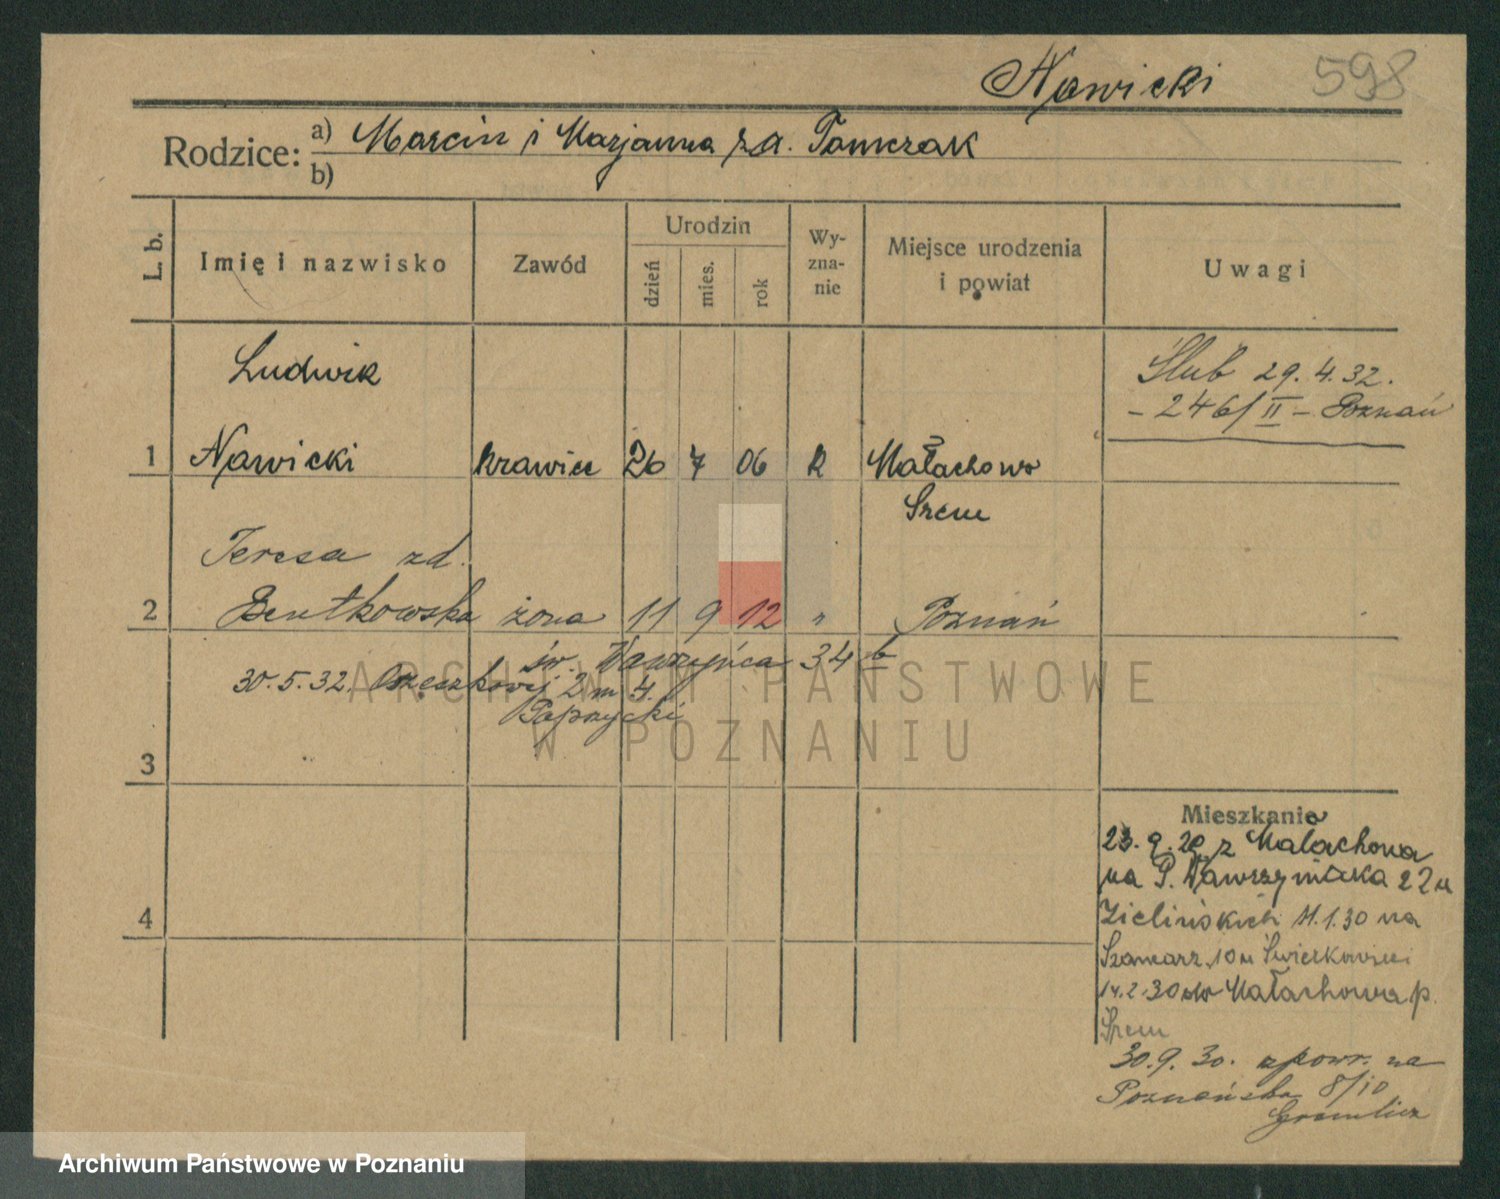 Nawicki 598
Rodzice: a) Marcin i Marjanna z d. Tomczak
b)
L. b. Imię i nazwisko Zawód Urodzin dzień mies. rok Wy-zna-nie Miejsce urodzenia i powiat Uwagi
Ludwik
Ślub 29.4.32.
- 246/II - Poznań
1 Nawicki krawiec 26 7 06 R Małachowo
Śrem
Teresa zd.
2 Bentkowska żona 11 9 12 " Poznań
św. Wawrzyńca 34 b
30.5.32. Orzeszkowej 2 m 4.
3
ARCHIWUM PAŃSTWOWE
W POZNANIU
Mieszkanie
23.9.29 z Malachowa
na P. Wawrzyniaka 22 u
4
Zielińskich 11.1.30 na
Szamarz. 10 u
14.2.30 do Małachowa p.
Śrem
30.9.30. z powr. na
Poznańska 8/10
Archiwum Państwowe w Poznaniu